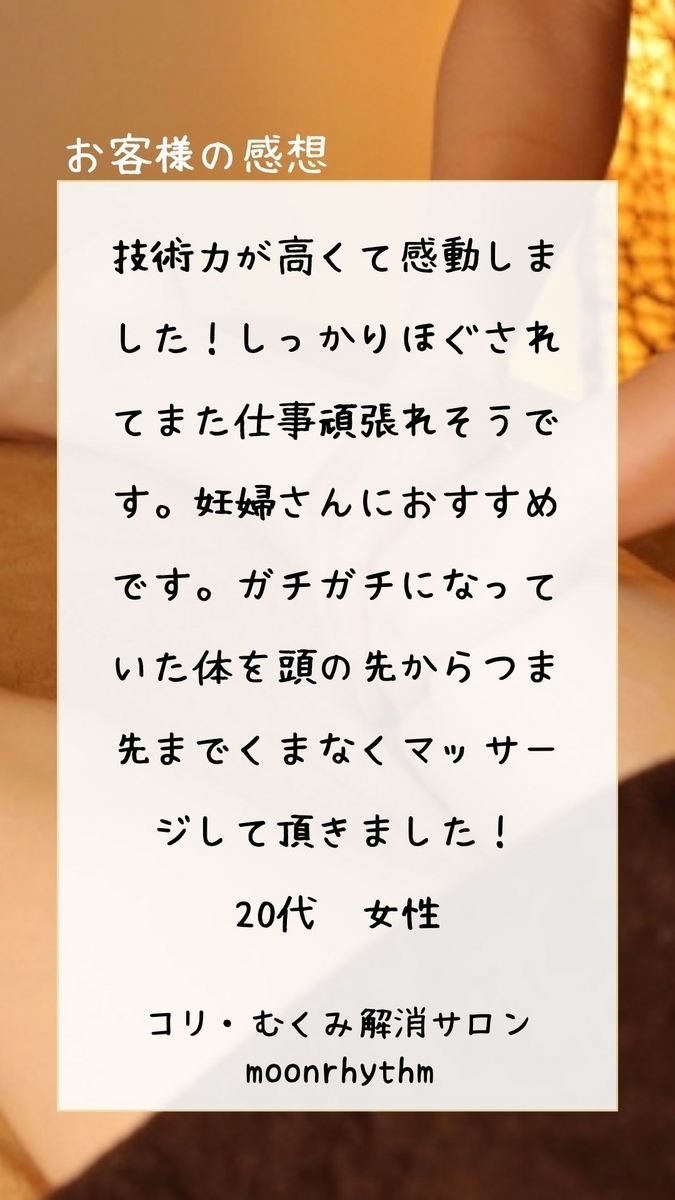 お客様の感想
技術力が高くて感動しま
した！しっかりほぐされ
てまた仕事頑張れそうで
す。妊婦さんにおすすめ
です。ガチガチになって
いた体を頭の先からつま
先までくまなくマッサー
ジして頂きました！
20代　女性
コリ・むくみ解消サロン
moonrhythm